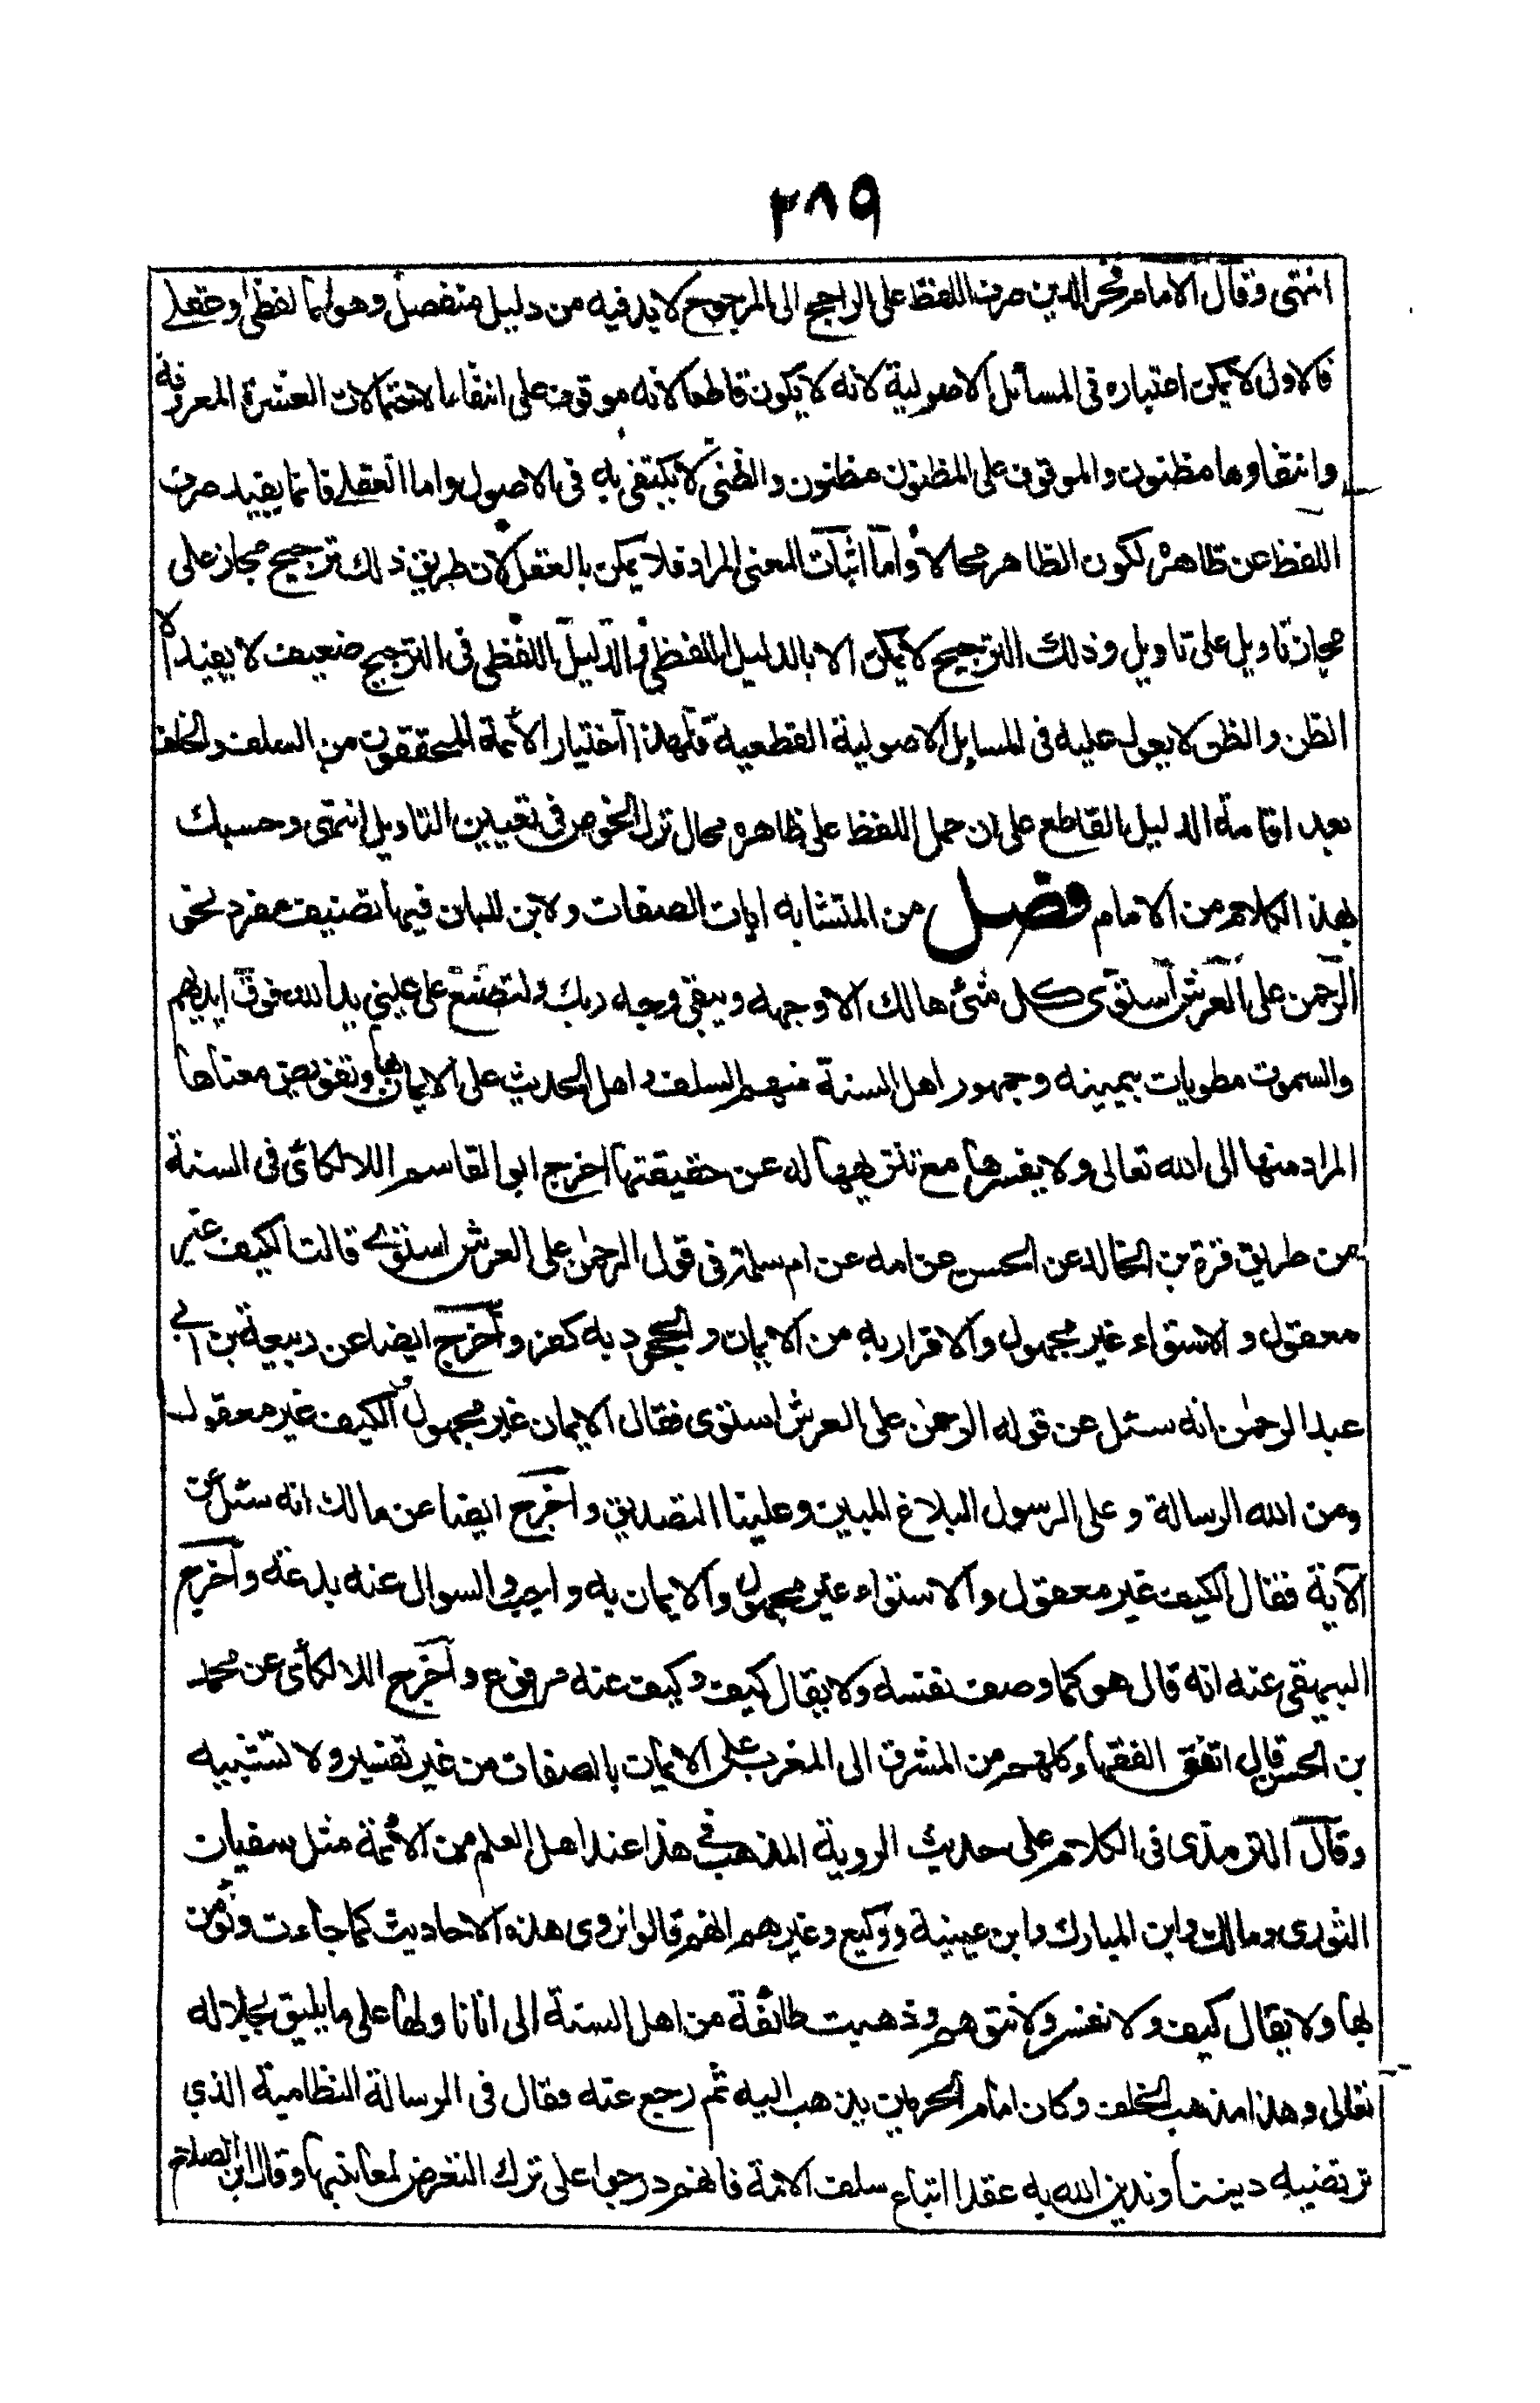 ٢٨٩
انتهى وقال الامام فخر الدين صرف اللفظ على الراجح الى المرجوح لا بد فيه من دليل منفصل وهو اما لفظى او عقلے
فالاول لا يمكن اعتباره فى المسائل الاصولية لانه لا يكون قاطعا لانه موقوف على انتفاء الاحتمالات العشرة المعروفة
وانتفاوها مظنون والموقوف على المظنون مظنون والظنى لا يكتفى به فى الاصول واما العقلے فانما يفيد صرف
اللفظ عن ظاهره لكون الظاهر محالا واما اثبات المعنى المراد فلا يمكن بالعقل لان طريق ذلك ترجيح مجاز على
مجاز وتاويل على تاويل وذلك الترجيح لا يمكن الا بالدليل اللفظى والدليل اللفظى فى الترجيح ضعيف لا يفيد الا
الظن والظن لا يعول عليه فى المسايل الاصولية القطعية فلهذا اختيار الائمة المحققون من السلف والخلف
بعد اقامة الدليل القاطع على ان حمل اللفظ على ظاهره محال ترك الخوض فى تعيين التاويل انتهى وحسبك
بهذا الكلام من الامام فصل من المتشابه ايات الصفات ولابن اللبان فيها تصنيف مفرد نحو
الرحمن على العرش استوى كل شئ هالك الا وجهه ويبقى وجه ربك ولتصنع على عيني يد الله فوق ايديهم
والسموت مطويات بيمينه وجمهور اهل السنة منهم السلف واهل الحديث على الايمان بها وتفويض معناها
المراد منها الى الله تعالى ولا يفسرها مع تنزيهها له عن حقيقتها اخرج ابو القاسم اللالكائى فى السنة
من طريق قرة بن الخالد عن الحسن عن امه عن ام سلمة فى قول الرحمٰن على العرش استوے قالت الكيف غير
معقول والاستواء غير مجهول والاقرار به من الايمان والجحود به كفر واخرج ايضا عن ربيعة بن ابي
عبد الرحمٰن انه سئل عن قوله الرحمٰن على العرش استوى فقال الايمان غير مجهول والكيف غير معقول
ومن الله الرسالة وعلى الرسول البلاغ المبين وعلينا التصديق واخرج ايضا عن مالك انه سئل عن
الآية فقال الكيف غير معقول والاستواء غير مجهول والايمان به واجب والسوال عنه بدعة واخرج
البيهقى عنه انه قال هو كما وصف نفسه ولا يقال كيف وكيف عنه مرفوع واخرج اللالكائى عن محمد
بن الحسن قال اتفق الفقهاء كلهم من المشرق الى المغرب على الايمان بالصفات من غير تفسير ولا تشبيه
وقال الترمذى فى الكلام على حديث الروية المذهب فى هذا عند اهل العلم من الائمة مثل سفيان
الثورى ومالك وابن المبارك وابن عيينة ووكيع وغيرهم انهم قالوا نروى هذه الاحاديث كما جاءت ونؤمن
بها ولا يقال كيف ولا نفسر ولا نتوهم وذهبت طائفة من اهل السنة الى اننا نا ولها على ما يليق بجلاله
تعالى وهذا مذهب الخلف وكان امام الحرمين يذهب اليه ثم رجع عنه فقال فى الرسالة النظامية الذي
نرتضيه دينا وندين الله به عقدا اتباع سلف الائمة فانهم درجوا على ترك التعرض لمعانيها وقال ابن الصلاح